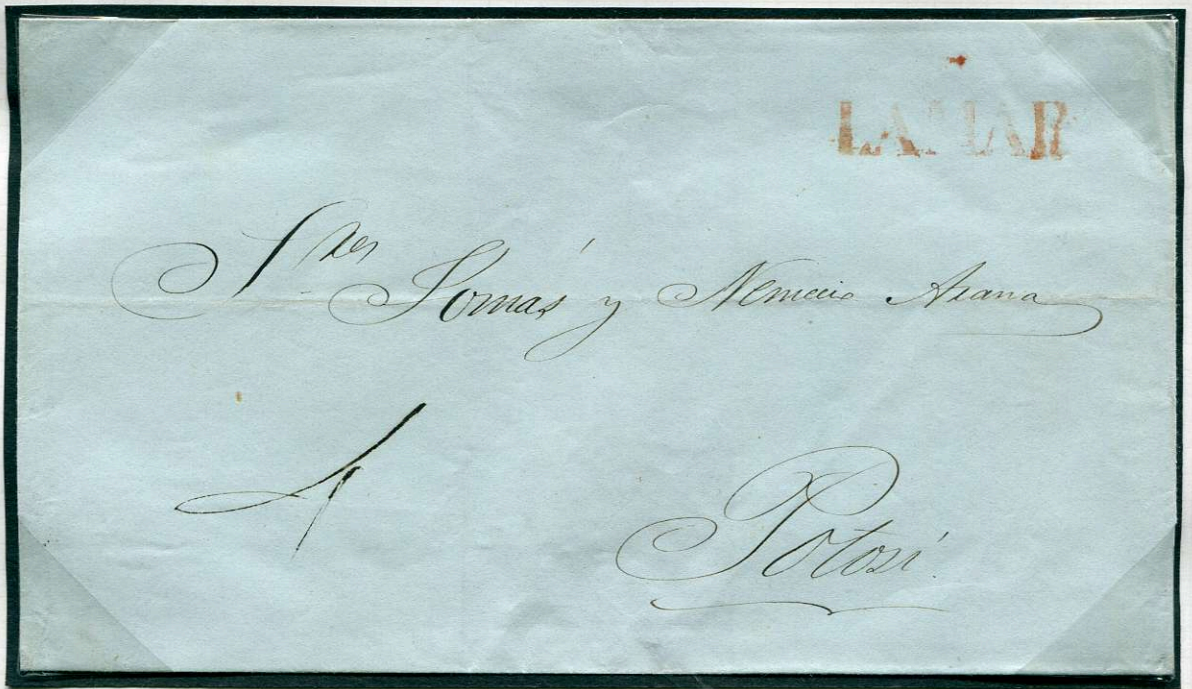 LAMAR
Sres Tomás y Nemecio Arana
4
Potosí